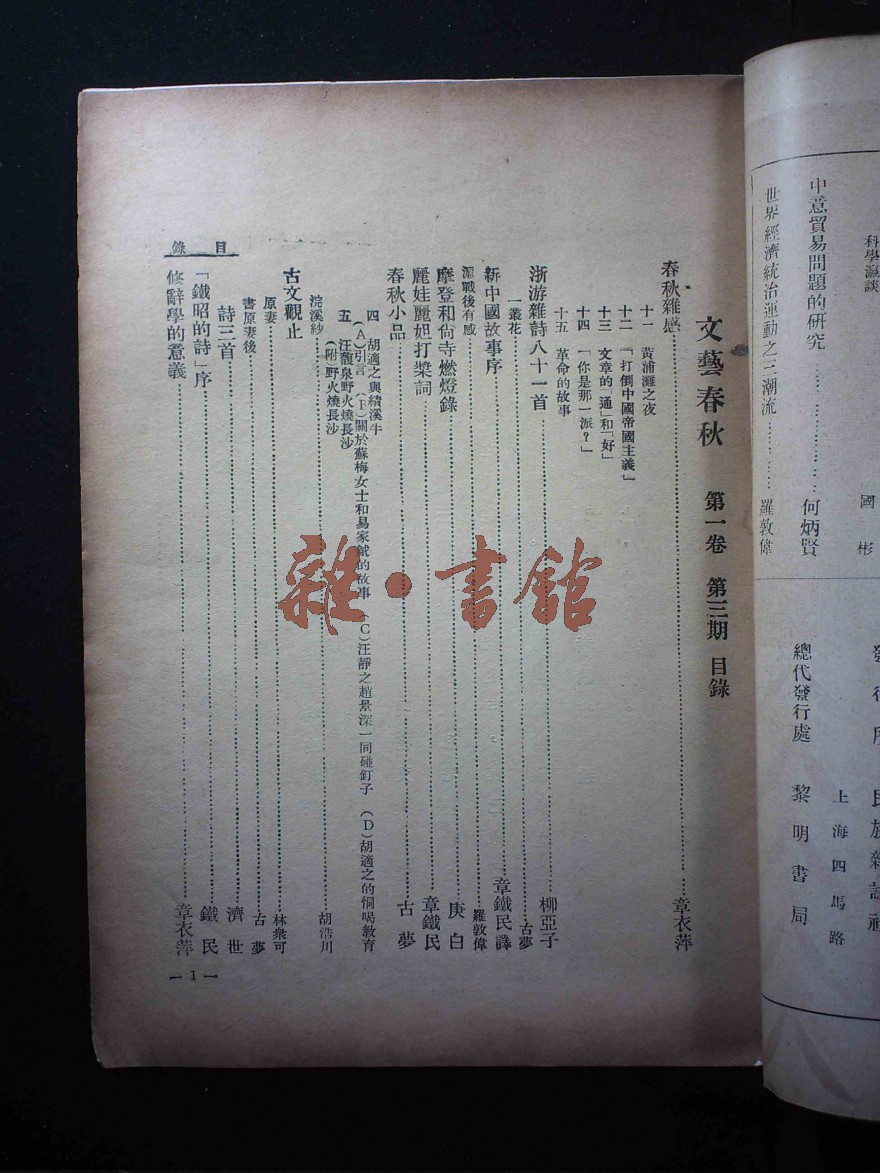 科學瀛談
國彬
中意貿易問題的研究……………何炳賢
世界經濟統治運動之三潮流…………羅敦偉
上海四馬路
總代發行處 黎明書局
文藝春秋 第一卷 第三期 目錄
春秋雜感……………章衣萍
十一 黃浦灘之夜
十二 「打倒中國帝國主義」
十三 文章的「通」和「好」
十四 「你是那一派？」
十五 革命的故事
浙游雜詩八十一首……………柳亞子
一叢花……………古夢
新中國故事序……………章鐵民譯
滬戰後有感……………羅敦偉
摩登和尚寺燃燈錄……………庚白
麗娃麗妲打槳詞……………章鐵民
春秋小品……………古夢
四 胡適之與績溪牛
(A)引言 (B)關於蘇梅女士和易家鉞的故事 (C)汪靜之趙景深一同碰釘子 (D)胡適之的恫喝教育
五 汪馥泉野火燒長沙
(附野火燒長沙)
浣溪紗……………胡浩川
古文觀止
原妻……………林衆可
書原妻後……………古夢
詩三首……………濟世
「鐵昭的詩」序……………鐵民
修辭學的意義……………章衣萍
目錄
— 1 —
雜·書館